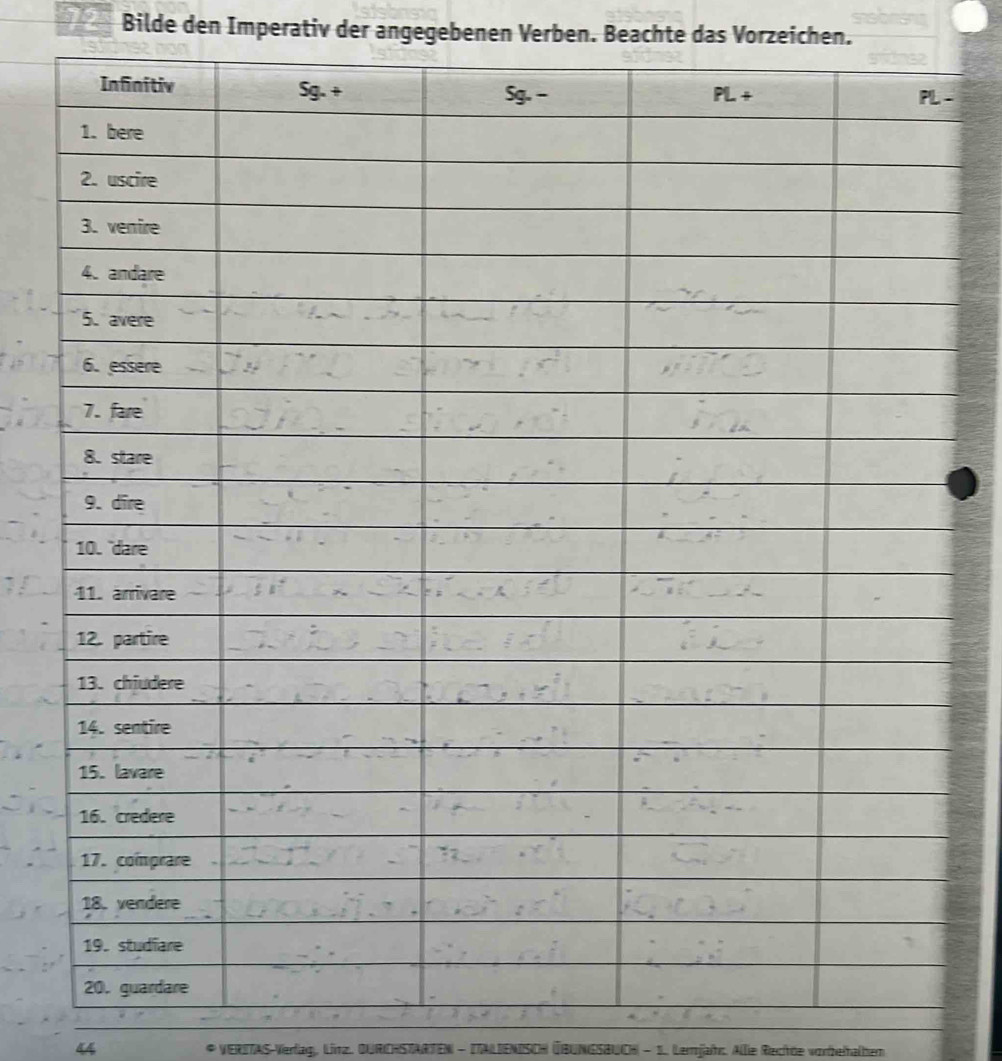 72 Bilde den Imperativ der angegebenen Verben. Beachte das Vorzeichen.
Infinitiv Sg. + Sg. – PL + PL –
1. bere
2. uscire
3. venire
4. andare
5. avere
6. essere
7. fare
8. stare
9. dire
10. dare
11. arrivare
12. partire
13. chiudere
14. sentire
15. lavare
16. credere
17. comprare
18. vendere
19. studiare
20. guardare
44 © VERITAS-Verlag, Linz. DURCHSTARTEN – ITALIENISCH ÜBUNGSBUCH – 1. Lernjahr. Alle Rechte vorbehalten